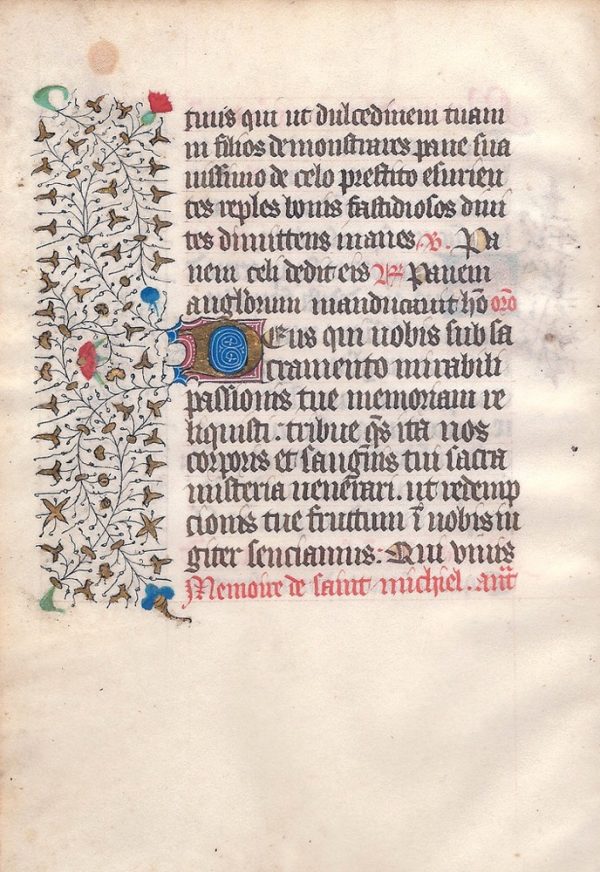 tuus qui ut dulcedinem tuam
in filios demonstrares pane sua
uissimo de celo prestito esurien
tes reples bonis fastidiosos diui
tes dimittens inanes. V. Pa
nem celi dedit eis R Panem
anglorum manducauit hō orō
Deus qui nobis sub sa
cramento mirabili
passionis tue memoriam re
liquisti. tribue q̄s ita nos
corporis et sanguīs tui sacra
misteria uenerari. ut redemp
cionis tue fructum ī nobis iu
giter senciamus. Qui viuis
Memoire de saint michiel. añt